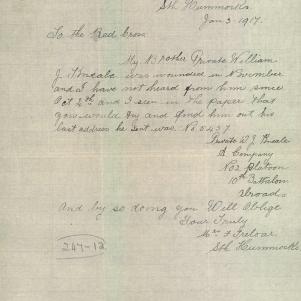 Sth Hummocks.
Jan 3. 1917.
To the Red Cross
My Brother Private William
J. Sheale was wounded in November
and I have not heard from him since
Oct 2th and I seen in the paper that
you would try and find him out his
last address he sent was No 5437
Private W J Sheale
A Company
No 2 Platoon
10th Battalion
Abroad.
And by so doing you Will Oblige
Your Truly
Mrs F Treloar
Sth Hummocks.
247-12